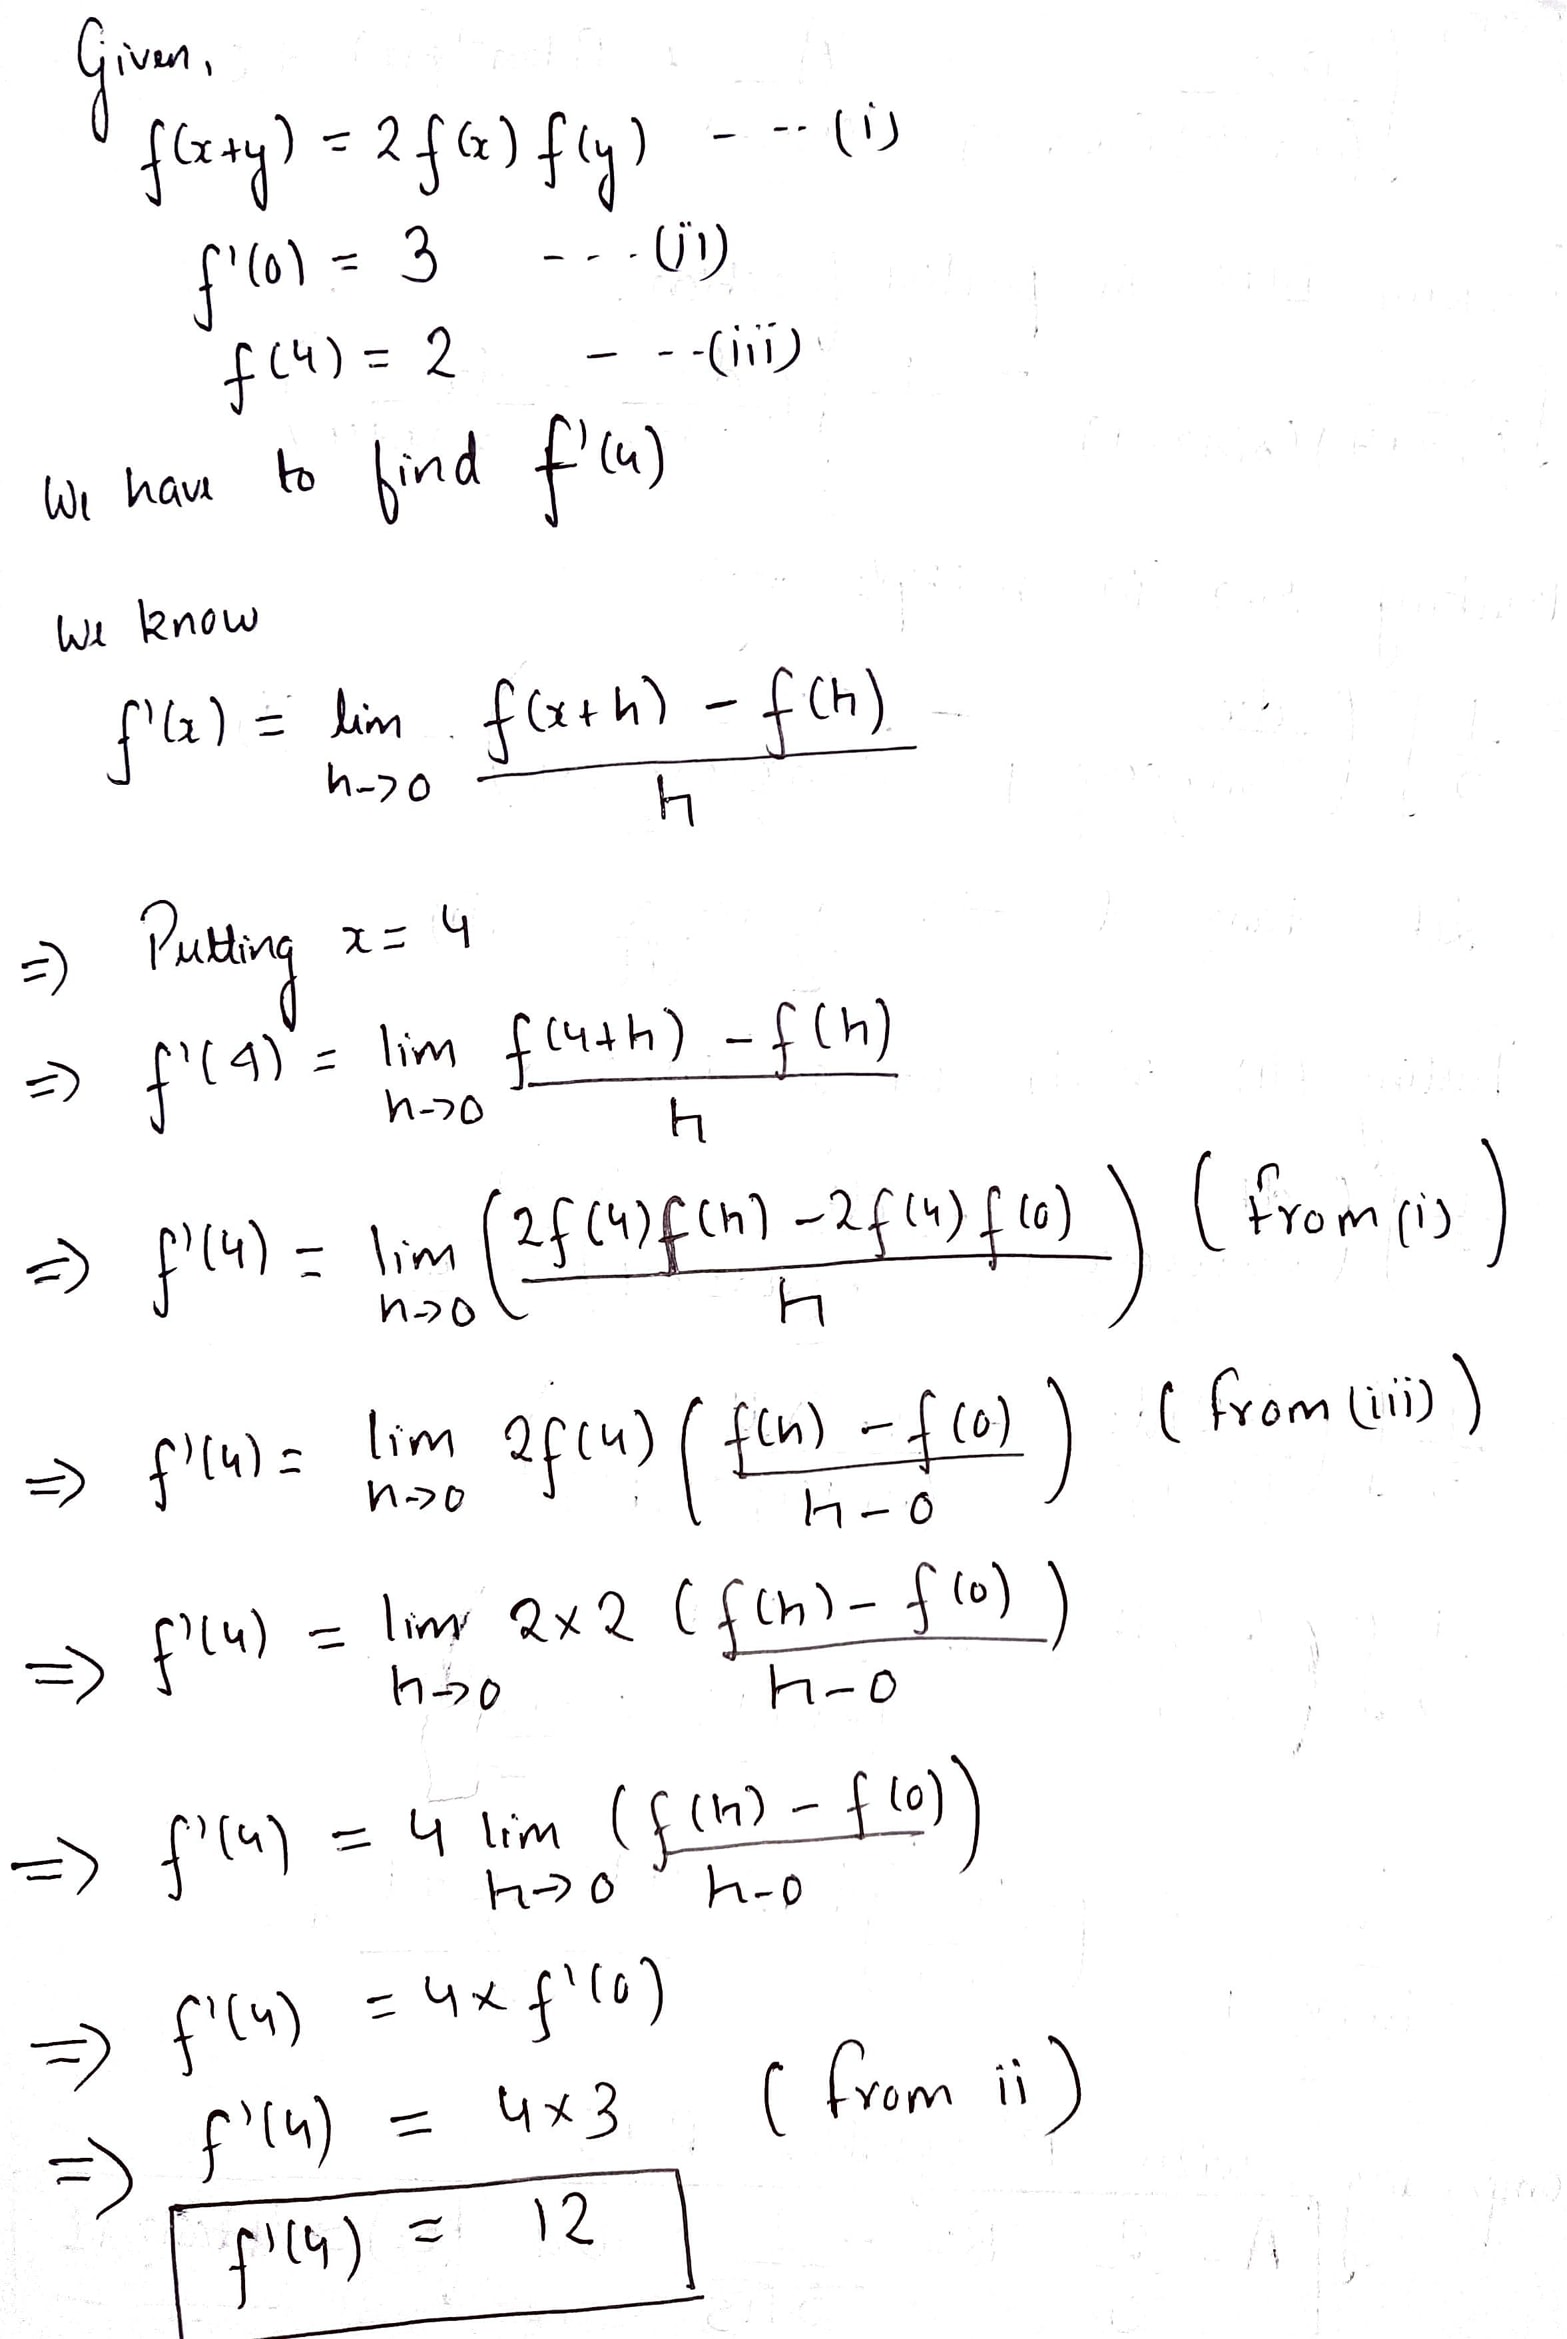 Given,
f(x+y) = 2 f(x) f(y) - - - (i)
f'(0) = 3 - - - (ii)
f(4) = 2 - - - (iii)
We have to find f'(4)
We know
f'(x) = lim h->0 f(x+h) - f(h) / h
=> Putting x = 4
=> f'(4) = lim h->0 f(4+h) - f(h) / h
=> f'(4) = lim h->0 ( 2f(4)f(h) - 2f(4)f(0) / h ) ( from (i) )
=> f'(4) = lim h->0 2f(4) ( f(h) - f(0) / h-0 ) ( from (iii) )
=> f'(4) = lim h->0 2x2 ( f(h) - f(0) / h-0 )
=> f'(4) = 4 lim h->0 ( f(h) - f(0) / h-0 )
=> f'(4) = 4 x f'(0)
=> f'(4) = 4x3 ( from ii )
f'(4) = 12